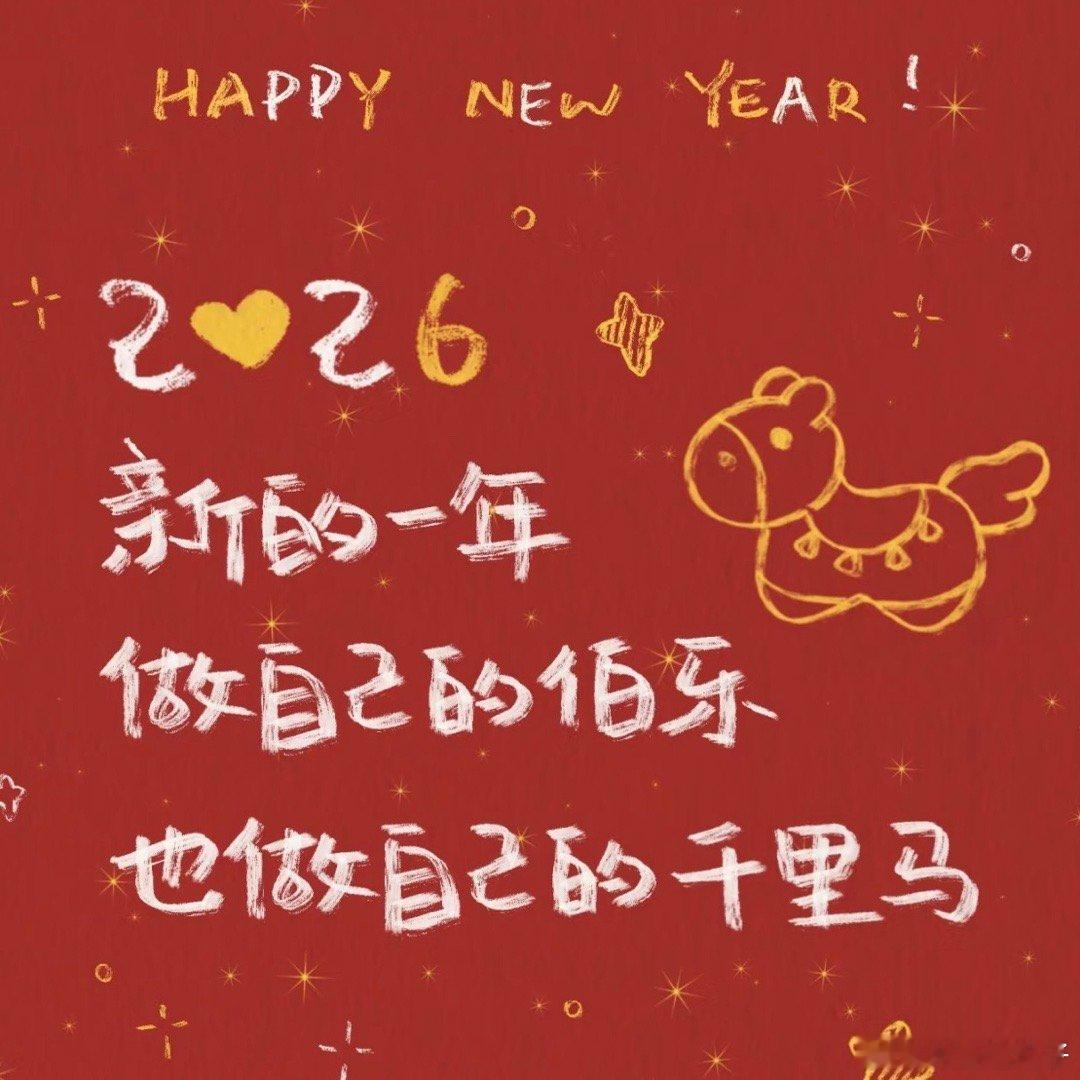 HAPPY NEW YEAR!
2026
新的一年
做自己的伯乐
也做自己的千里马